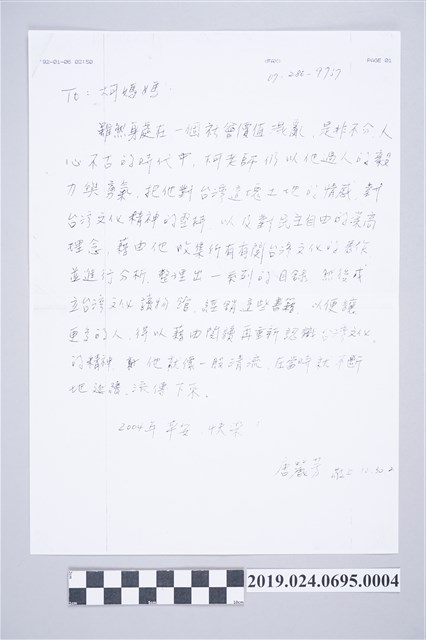 '92-01-06 02:50 PAGE 01
To: 柯媽媽
雖然身處在一個社會價值混亂、是非不分、人
心不古的時代中,柯老師仍以他過人的毅
力與勇氣,把他對台灣這塊土地的情感、對
台灣文化精神的 以及對民主自由的崇高
理念,藉由他收集所有有關台灣文化的著作
並進行分析,整理出一系列的目錄,然後成
立台灣文化 館,經銷這些書籍,以便讓
更多的人,得以藉由閱讀再重新認識台灣文化
的精神,他就像一股清流,在當時就不斷
地延續、流傳下來。
2004年 平安 快樂!
2019.024.0695.0004